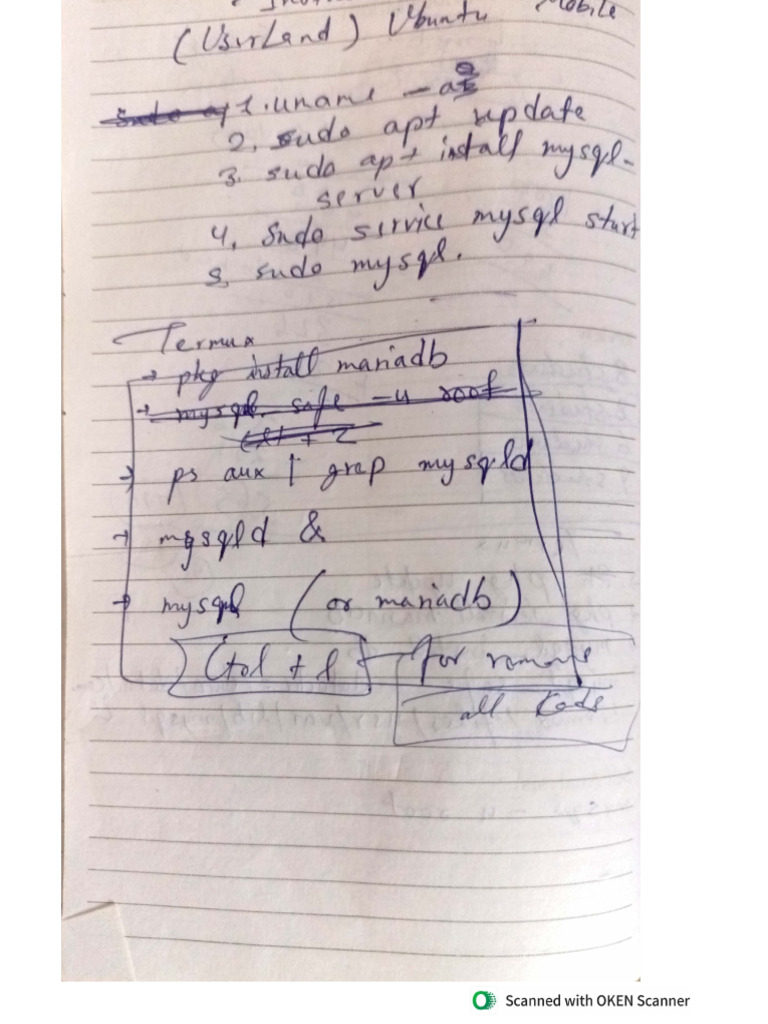 Mobile
(UserLand) Ubuntu
1. uname -a
2. sudo apt update
3. sudo apt install mysql-
server
4. sudo service mysql start
5. sudo mysql.
Termux
→ pkg install mariadb
→ mysqld safe -u root
→ ps aux | grep mysqld
→ mysqld &
→ mysql (or mariadb)
Ctrl + l for remove
all Code
Scanned with OKEN Scanner